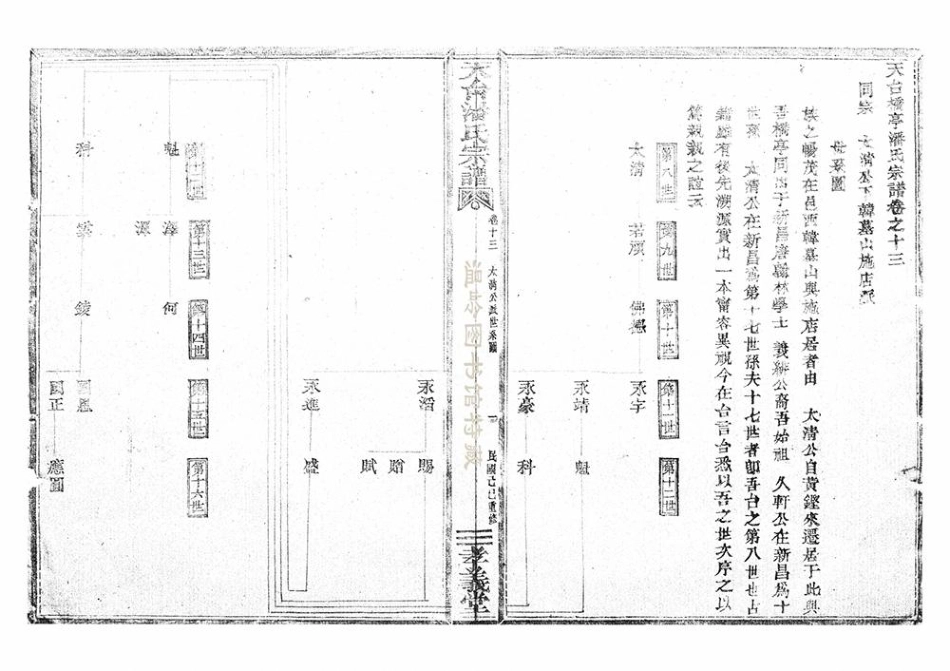 天台橋亭潘氏宗譜卷之十三
同派 太清公下韓墓山施店派
世系圖
族之暢茂在邑西韓墓山與施店居者由 太清公自黃鏗來遷居于此與
吾橋亭同出于新昌唐翰林學士 義緋公裔吾始祖 久軒公在新昌為十
世孫 太清公在新昌為第十七世孫夫十七世者卽吾台之第八世也占
籍雖有後先溯源實出一本甯容異視今在台言台悉以吾之世次序之以
篤親親之誼云
第八世 第九世 第十世 第十一世 第十二世
太清 若 佛 永字
永靖 魁
永豪 科
天台潘氏宗譜 卷十三 太清公派世系圖 一 民國己巳重修 孝義堂
永滔 賜
贈
賦
永進 盛
第十二世 第十三世 第十四世 第十五世 第十六世
魁 海 何
源
科 雲 綾
國恩
國正 應圓